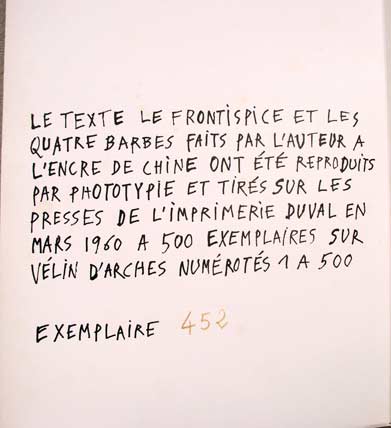 LE TEXTE LE FRONTISPICE ET LES
QUATRE BARBES FAITS PAR L'AUTEUR A
L'ENCRE DE CHINE ONT ÉTÉ REPRODUITS
PAR PHOTOTYPIE ET TIRÉS SUR LES
PRESSES DE L'IMPRIMERIE DUVAL EN
MARS 1960 A 500 EXEMPLAIRES SUR
VÉLIN D'ARCHES NUMÉROTÉS 1 A 500
EXEMPLAIRE 452